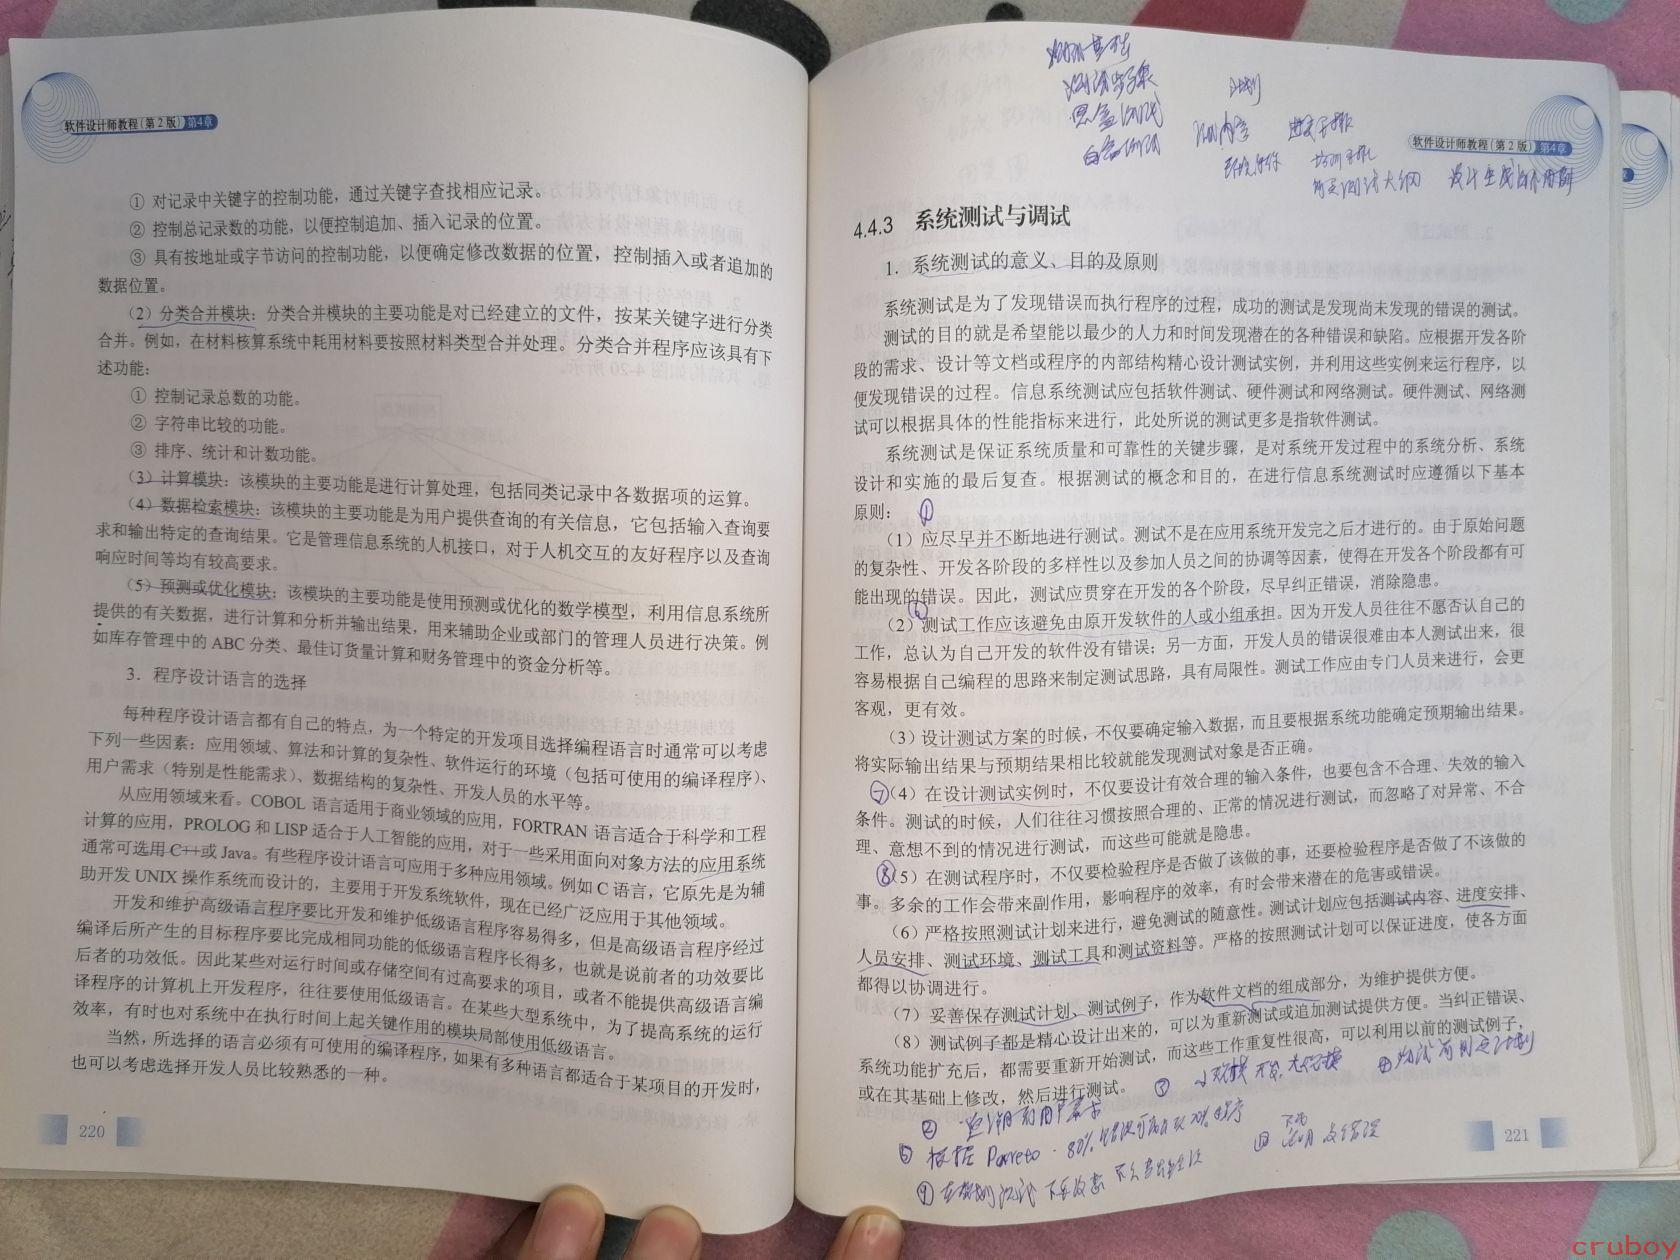 软件设计师教程(第2版) 第4章
① 对记录中关键字的控制功能，通过关键字查找相应记录。
② 控制总记录数的功能，以便控制追加、插入记录的位置。
③ 具有按地址或字节访问的控制功能，以便确定修改数据的位置，控制插入或者追加的
数据位置。
（2）分类合并模块：分类合并模块的主要功能是对已经建立的文件，按某关键字进行分类
合并。例如，在材料核算系统中耗用材料要按照材料类型合并处理。分类合并程序应该具有下
述功能：
① 控制记录总数的功能。
② 字符串比较的功能。
③ 排序、统计和计数功能。
（3）计算模块：该模块的主要功能是进行计算处理，包括同类记录中各数据项的运算。
（4）数据检索模块：该模块的主要功能是为用户提供查询的有关信息，它包括输入查询要
求和输出特定的查询结果。它是管理信息系统的人机接口，对于人机交互的友好程序以及查询
响应时间等均有较高要求。
（5）预测或优化模块：该模块的主要功能是使用预测或优化的数学模型，利用信息系统所
提供的有关数据，进行计算和分析并输出结果，用来辅助企业或部门的管理人员进行决策。例
如库存管理中的 ABC 分类、最佳订货量计算和财务管理中的资金分析等。
3．程序设计语言的选择
每种程序设计语言都有自己的特点，为一个特定的开发项目选择编程语言时通常可以考虑
下列一些因素：应用领域、算法和计算的复杂性、软件运行的环境（包括可使用的编译程序）、
用户需求（特别是性能需求）、数据结构的复杂性、开发人员的水平等。
从应用领域来看。COBOL 语言适用于商业领域的应用，FORTRAN 语言适合于科学和工程
计算的应用，PROLOG 和 LISP 适合于人工智能的应用，对于一些采用面向对象方法的应用系统
通常可选用 C++或 Java。有些程序设计语言可应用于多种应用领域。例如 C 语言，它原先是为辅
助开发 UNIX 操作系统而设计的，主要用于开发系统软件，现在已经广泛应用于其他领域。
开发和维护高级语言程序要比开发和维护低级语言程序容易得多，但是高级语言程序经过
编译后所产生的目标程序要比完成相同功能的低级语言程序长得多，也就是说前者的功效要比
后者的功效低。因此某些对运行时间或存储空间有过高要求的项目，或者不能提供高级语言编
译程序的计算机上开发程序，往往要使用低级语言。在某些大型系统中，为了提高系统的运行
效率，有时也对系统中在执行时间上起关键作用的模块局部使用低级语言。
当然，所选择的语言必须有可使用的编译程序，如果有多种语言都适合于某项目的开发时，
也可以考虑选择开发人员比较熟悉的一种。
220
测试步骤
计划
黑盒测试
白盒测试
测试大纲
软件设计师教程(第2版) 第4章
4.4.3 系统测试与调试
1．系统测试的意义、目的及原则
系统测试是为了发现错误而执行程序的过程，成功的测试是发现尚未发现的错误的测试。
测试的目的就是希望能以最少的人力和时间发现潜在的各种错误和缺陷。应根据开发各阶
段的需求、设计等文档或程序的内部结构精心设计测试实例，并利用这些实例来运行程序，以
便发现错误的过程。信息系统测试应包括软件测试、硬件测试和网络测试。硬件测试、网络测
试可以根据具体的性能指标来进行，此处所说的测试更多是指软件测试。
系统测试是保证系统质量和可靠性的关键步骤，是对系统开发过程中的系统分析、系统
设计和实施的最后复查。根据测试的概念和目的，在进行信息系统测试时应遵循以下基本
原则： ①
（1）应尽早并不断地进行测试。测试不是在应用系统开发完之后才进行的。由于原始问题
的复杂性、开发各阶段的多样性以及参加人员之间的协调等因素，使得在开发各个阶段都有可
能出现的错误。因此，测试应贯穿在开发的各个阶段，尽早纠正错误，消除隐患。
⑥
（2）测试工作应该避免由原开发软件的人或小组承担。因为开发人员往往不愿否认自己的
工作，总认为自己开发的软件没有错误；另一方面，开发人员的错误很难由本人测试出来，很
容易根据自己编程的思路来制定测试思路，具有局限性。测试工作应由专门人员来进行，会更
客观，更有效。
（3）设计测试方案的时候，不仅要确定输入数据，而且要根据系统功能确定预期输出结果。
将实际输出结果与预期结果相比较就能发现测试对象是否正确。
⑦（4）在设计测试实例时，不仅要设计有效合理的输入条件，也要包含不合理、失效的输入
条件。测试的时候，人们往往习惯按照合理的、正常的情况进行测试，而忽略了对异常、不合
理、意想不到的情况进行测试，而这些可能就是隐患。
⑧（5）在测试程序时，不仅要检验程序是否做了该做的事，还要检验程序是否做了不该做的
事。多余的工作会带来副作用，影响程序的效率，有时会带来潜在的危害或错误。
（6）严格按照测试计划来进行，避免测试的随意性。测试计划应包括测试内容、进度安排、
人员安排、测试环境、测试工具和测试资料等。严格的按照测试计划可以保证进度，使各方面
都得以协调进行。
（7）妥善保存测试计划、测试例子，作为软件文档的组成部分，为维护提供方便。
（8）测试例子都是精心设计出来的，可以为重新测试或追加测试提供方便。当纠正错误、
系统功能扩充后，都需要重新开始测试，而这些工作重复性很高，可以利用以前的测试例子，
或在其基础上修改，然后进行测试。
③
④ 测试前制定计划
②
⑤ 根据 Pareto
⑨
221
cruboy